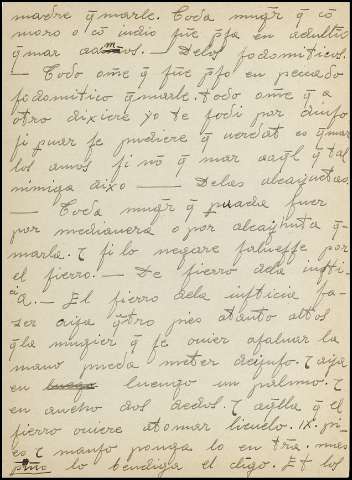 madre q̃marle. Toda mug̃r q̃ cõ
moro o cõ iudio fue p̃sa en adult̃io
q̃mar aam̃os. — Delos sodomiticos.
— Todo om̃e q̃ fue p̃so en peccado
sodomitico q̃marle. todo om̃e q̃ a
otro dixiere yo te fodi por
si puar se pudiere q̃ verdat es q̃mar
los amos si nõ q̃ mar aaq̃l q̃ tal
mimiga dixo — Delas alcayuetas.
— Toda mug̃r q̃ puada fuer
por medianera o por alcayhueta q̃-
marla. τ si lo negare salvesse por
el fierro. — De fierro dela iusti-
cia. — El fierro dela iusticia fa-
zer aiya q̃tro pies atanto altos
q̃la mugier q̃ se ovier asalvar la
mano pueda meter deiuso. τ aya
en luengo un palmo. τ
en ancho dos dedos. τ aq̃lla q̃ el
fierro oviere atomar lievelo. ix. pi-
es τ manso ponga lo en tr̃a. mas
p̃mo lo bendiga el cl̃igo. Et los